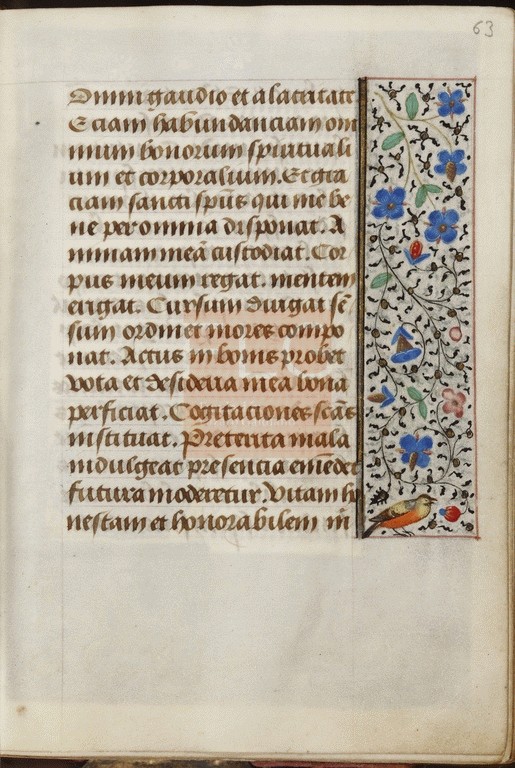 63
Omni gaudio et alacritate
Eciam habundanciam om
nium bonorum spirituali
um et corporalium. Et gra
ciam sancti spūs qui me be
ne per omnia disponat. A
nimam meā custodiat. Cor
pus meum regat. mentem
erigat. Cursum dirigat sē
sum ordinet mores compo
nat. Actus in bonis probet
vota et desideria mea bona
perficiat. Cogitaciones scās
instituat. Preterita mala
indulgeat presencia emēdet
futura moderetur. Vitam ho
nestam et honorabilem m̄